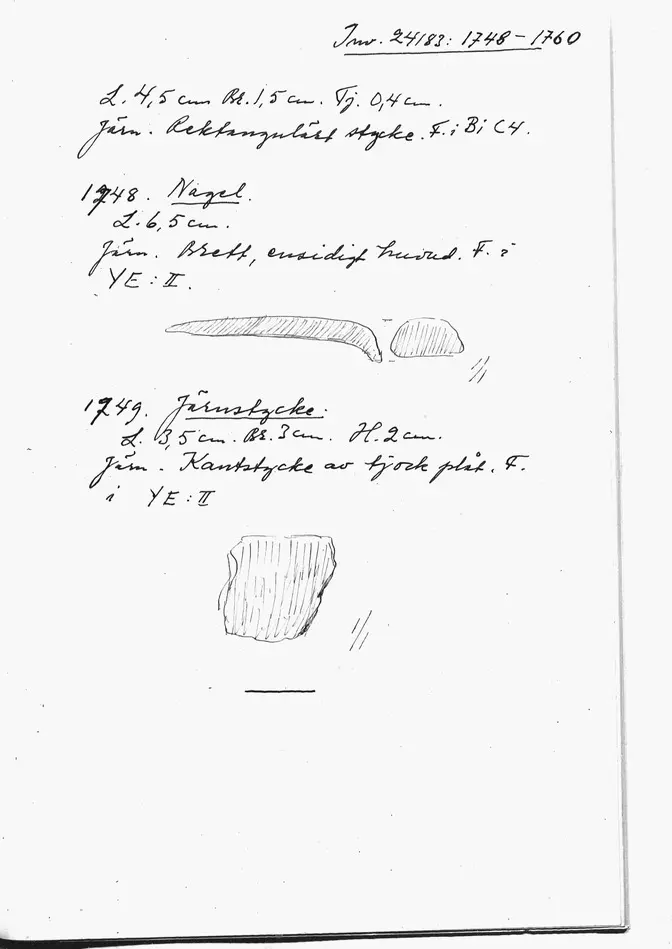 Inv. 24183: 1748-1760
L. 4,5 cm Br. 1,5 cm. Tj. 0,4 cm.
Järn. Rektangulärt stycke. F. i B i C4.
1748. Nagel.
L. 6,5 cm.
Järn. Brett, ensidigt huvud. F. i
YE: II.
1/1
1749. Järnstycke.
L. 3,5 cm. Br. 3 cm. H. 2 cm.
Järn. Kantstycke av tjock plåt. F.
i YE: II
1/1